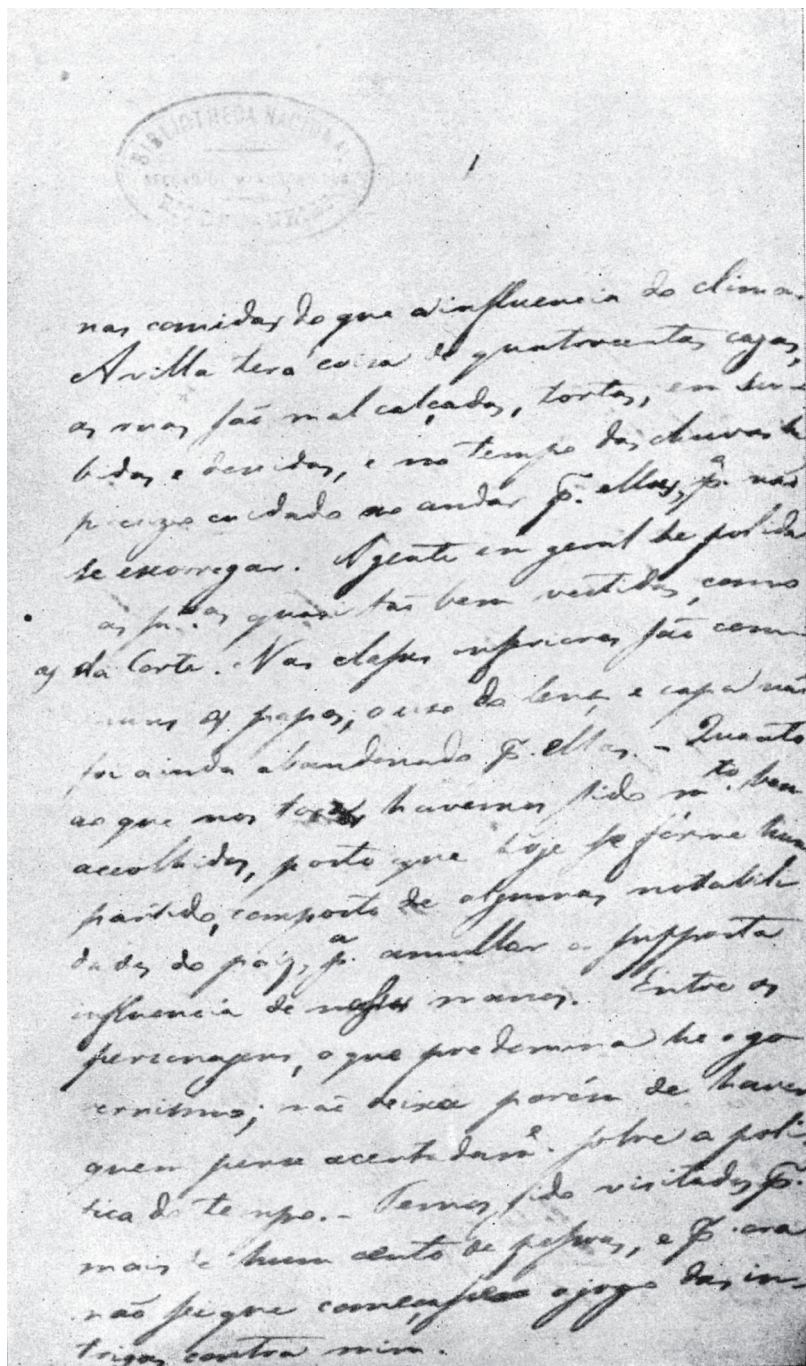 BIBLIOTHECA NACIONAL
nas comidas do que a influencia do clima.
A villa terá coisa de quatrocentas cazas,
as ruas são mal calçadas, tortas, em su-
bidas e descidas, e no tempo das chuvas he
precizo cuidado no andar p. ellas, p.ª não
se escorregar. A gente em geral he polida
as sn.ras quasi tão bem vestidas, como
as da Corte. Nas classes inferiores são com-
muns os papos; o uso do lenço e capa não
foi ainda abandonado p. ellas. — Quanto
ao que nos toca havemos sido m.to bem
acolhidos, posto que hoje se forme hum
partido, composto de algumas notabili
dades do paiz, p.ª annullar a supposta
influencia de nossos manos. Entre os
personagens, o que predomina he o go
vernismo; não deixa porém de haver
quem pense acertadam.e sobre a poli-
tica do tempo. — Temos sido visitados p.
mais de hum cento de pessoas, e p. ora
não sei que começasse o jogo das in-
trigas contra mim.